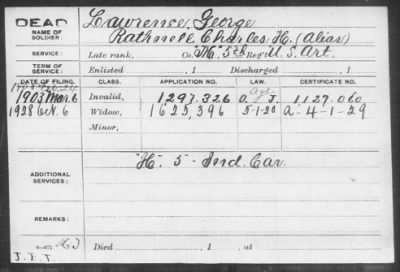 DEAD
NAME OF SOLDIER:
Lawrence, George
Rathnell, Charles H. (Alias)
SERVICE:
Late rank, Co. "H." 5th Reg't U.S. Art.
TERM OF SERVICE:
Enlisted , 1 Discharged , 1
DATE OF FILING. CLASS. APPLICATION NO. LAW. CERTIFICATE NO.
1903 Mar. 6 Invalid, 1297.326 1127.060
1928 Oct. 6 Widow, 1625,396 5-1-20 a-4-1-29
Minor,
ADDITIONAL SERVICES:
"H." 5 - Ind. Cav.
REMARKS:
Died , 1 , at